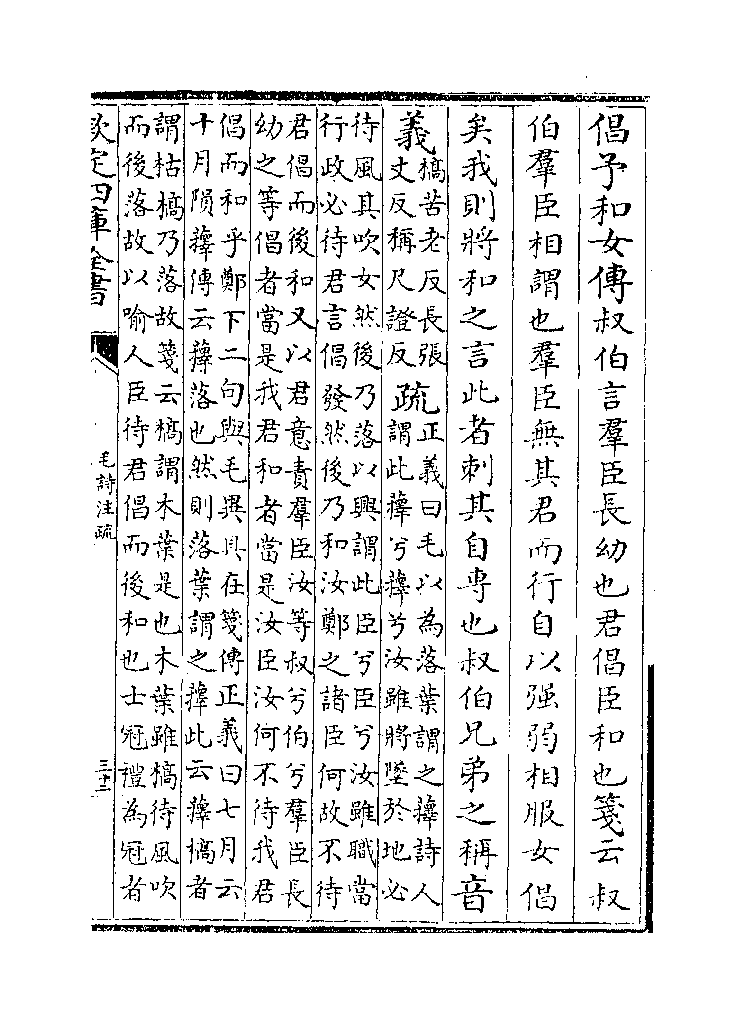 倡予和女傳叔伯言羣臣長幼也君倡臣和也箋云叔
伯羣臣相謂也羣臣無其君而行自以强弱相服女倡
矣我則將和之言此者刺其自専也叔伯兄弟之稱音
義槁苦老反長張
丈反稱尺證反
疏正義曰毛以為落葉謂之蘀詩人
謂此蘀兮蘀兮汝雖將墜於地必
待風其吹女然後乃落以興謂此臣兮臣兮汝雖職當
行政必待君言倡發然後乃和汝鄭之諸臣何故不待
君倡而後和又以君意責羣臣汝等叔兮伯兮羣臣長
幼之等倡者當是我君和者當是汝臣汝何不待我君
倡而和乎鄭下二句與毛異具在箋傳正義曰七月云
十月隕蘀傳云蘀落也然則落葉謂之蘀此云蘀槁者
謂枯槁乃落故箋云槁謂木葉是也木葉雖槁待風吹
而後落故以喻人臣待君倡而後和也士冠禮為冠者
欽定四庫全書
毛詩注疏
三十二